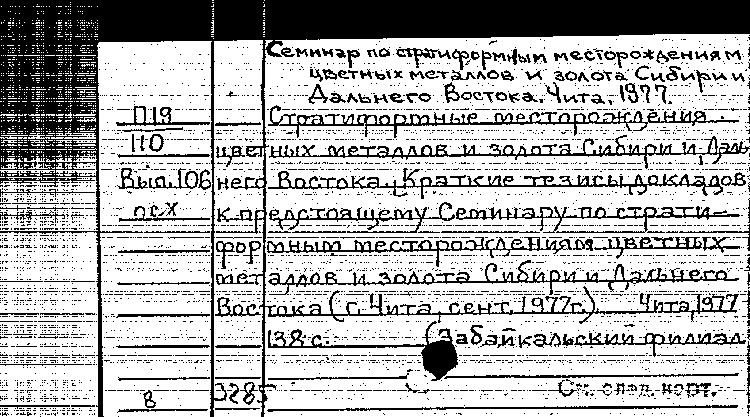 Семинар по стратиформным месторождениям
цветных металлов и золота Сибири и
Дальнего Востока. Чита, 1977.
П19 Стратиформные месторождения
110 цветных металлов и золота Сибири и Даль
Вып. 106 него Востока. Краткие тезисы докладов
псх к предстоящему Семинару по страти-
формным месторождениям цветных
металлов и золота Сибири и Дальнего
Востока (г. Чита, сент. 1977г.). Чита, 1977
138 с. (Забайкальский филиал
См. след. карт.
в 3285